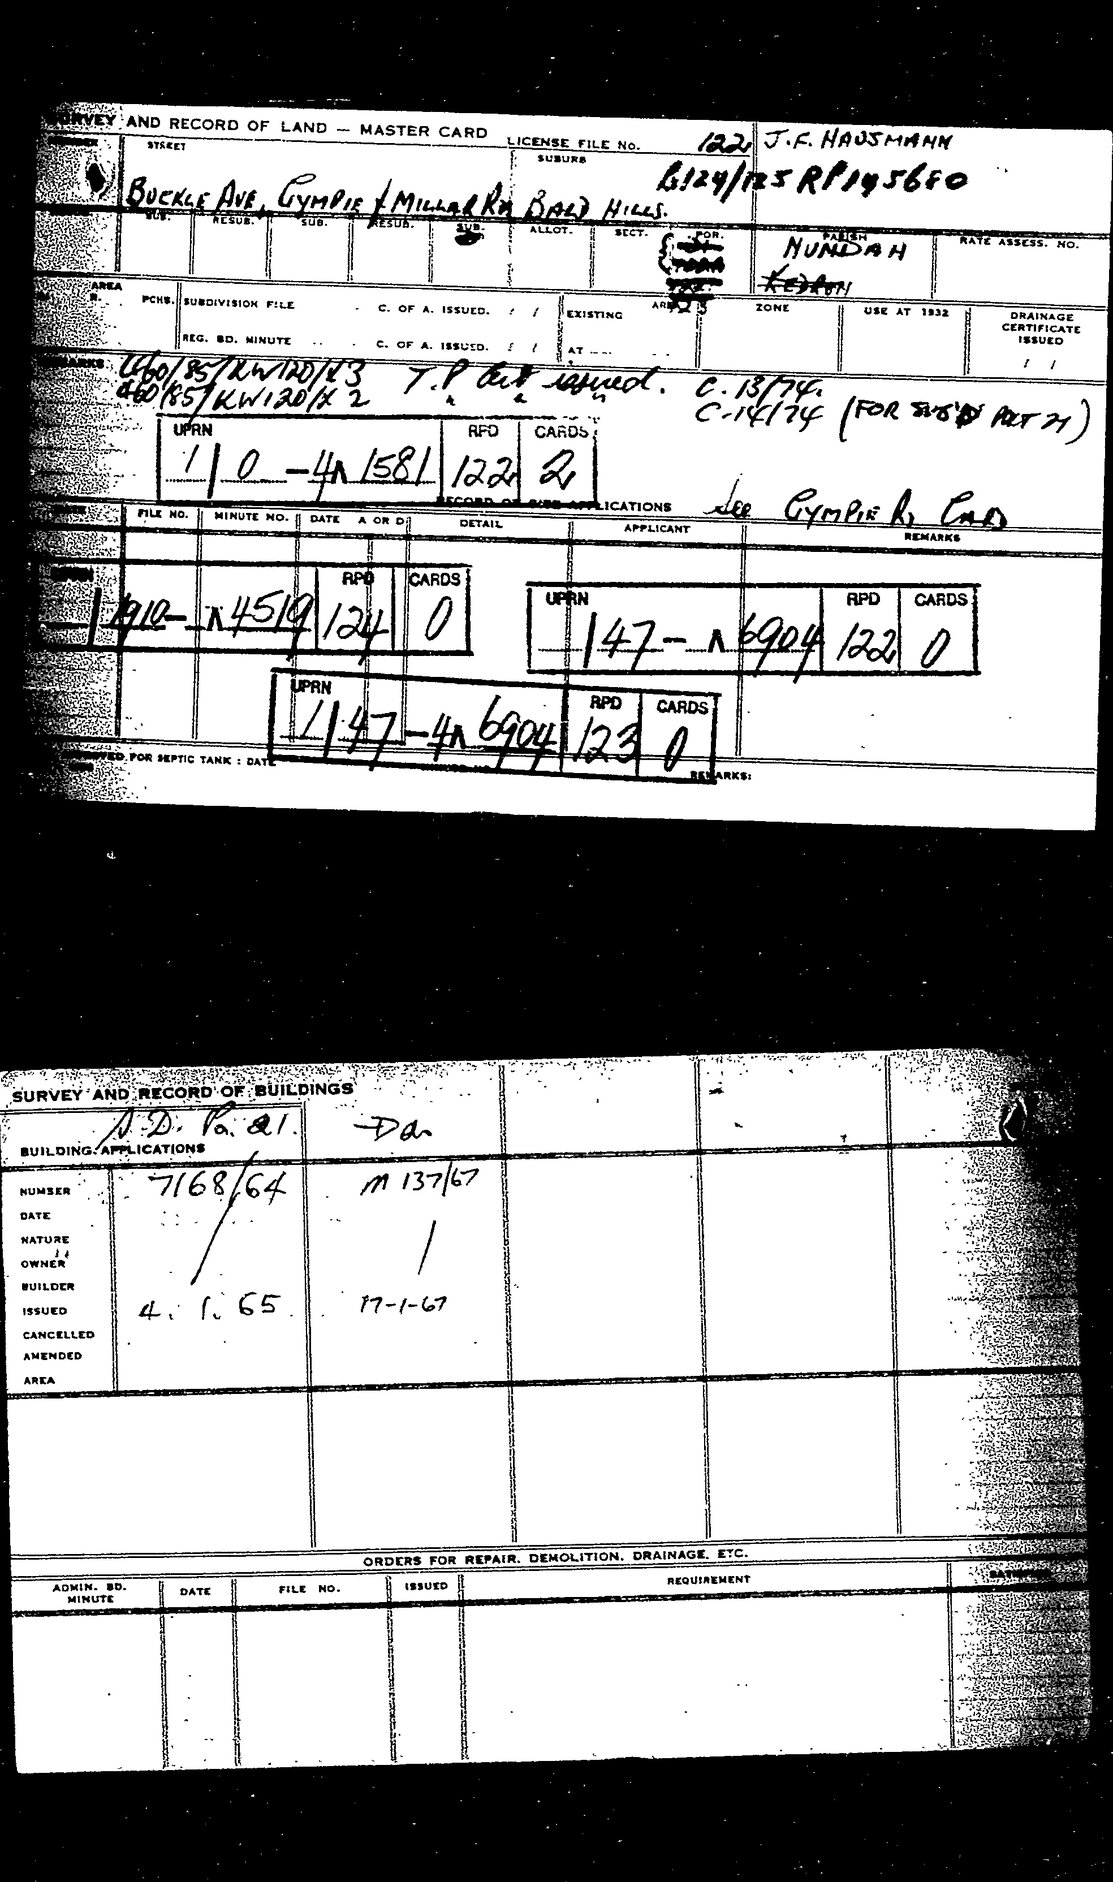 SURVEY AND RECORD OF LAND — MASTER CARD
LICENSE FILE No. 122 J.F. HAUSMANN
STREET SUBURB
124/125 RP195680
BUCKLE AVE, GYMPIE & MILLAR RDS BALD HILLS.
SUB. RESUB. SUB. RESUB. SUB. ALLOT. SECT. POR. PARISH RATE ASSESS. NO.
NUNDAH
KEDRON
AREA
R. PCHS. SUBDIVISION FILE C. OF A. ISSUED. / / EXISTING AREA ZONE USE AT 1932 DRAINAGE CERTIFICATE ISSUED
REG. BD. MINUTE C. OF A. ISSUED. / / AT / /
REMARKS 460/85/KW120/X3 T.P. Cert issued. C.13/74.
460/85/KW120/X2 " " " C.14/74 (FOR SUBS PART 21)
UPRN RPD CARDS
1/0-4^1581 122 2
RECORD OF APPLICATIONS
See GYMPIE Rd CARD
FILE NO. MINUTE NO. DATE A OR D DETAIL APPLICANT REMARKS
UPRN RPD CARDS
1910-^4519 124 0
UPRN RPD CARDS
/47-^6904 122 0
UPRN RPD CARDS
1/47-4^6904 123 0
FOR SEPTIC TANK: DATE REMARKS:
SURVEY AND RECORD OF BUILDINGS
BUILDING APPLICATIONS
NUMBER 7168/64 M 137/67
DATE
NATURE
OWNER
BUILDER
ISSUED 4.1.65 17-1-67
CANCELLED
AMENDED
AREA
ORDERS FOR REPAIR, DEMOLITION, DRAINAGE, ETC.
ADMIN. BD. MINUTE DATE FILE NO. ISSUED REQUIREMENT